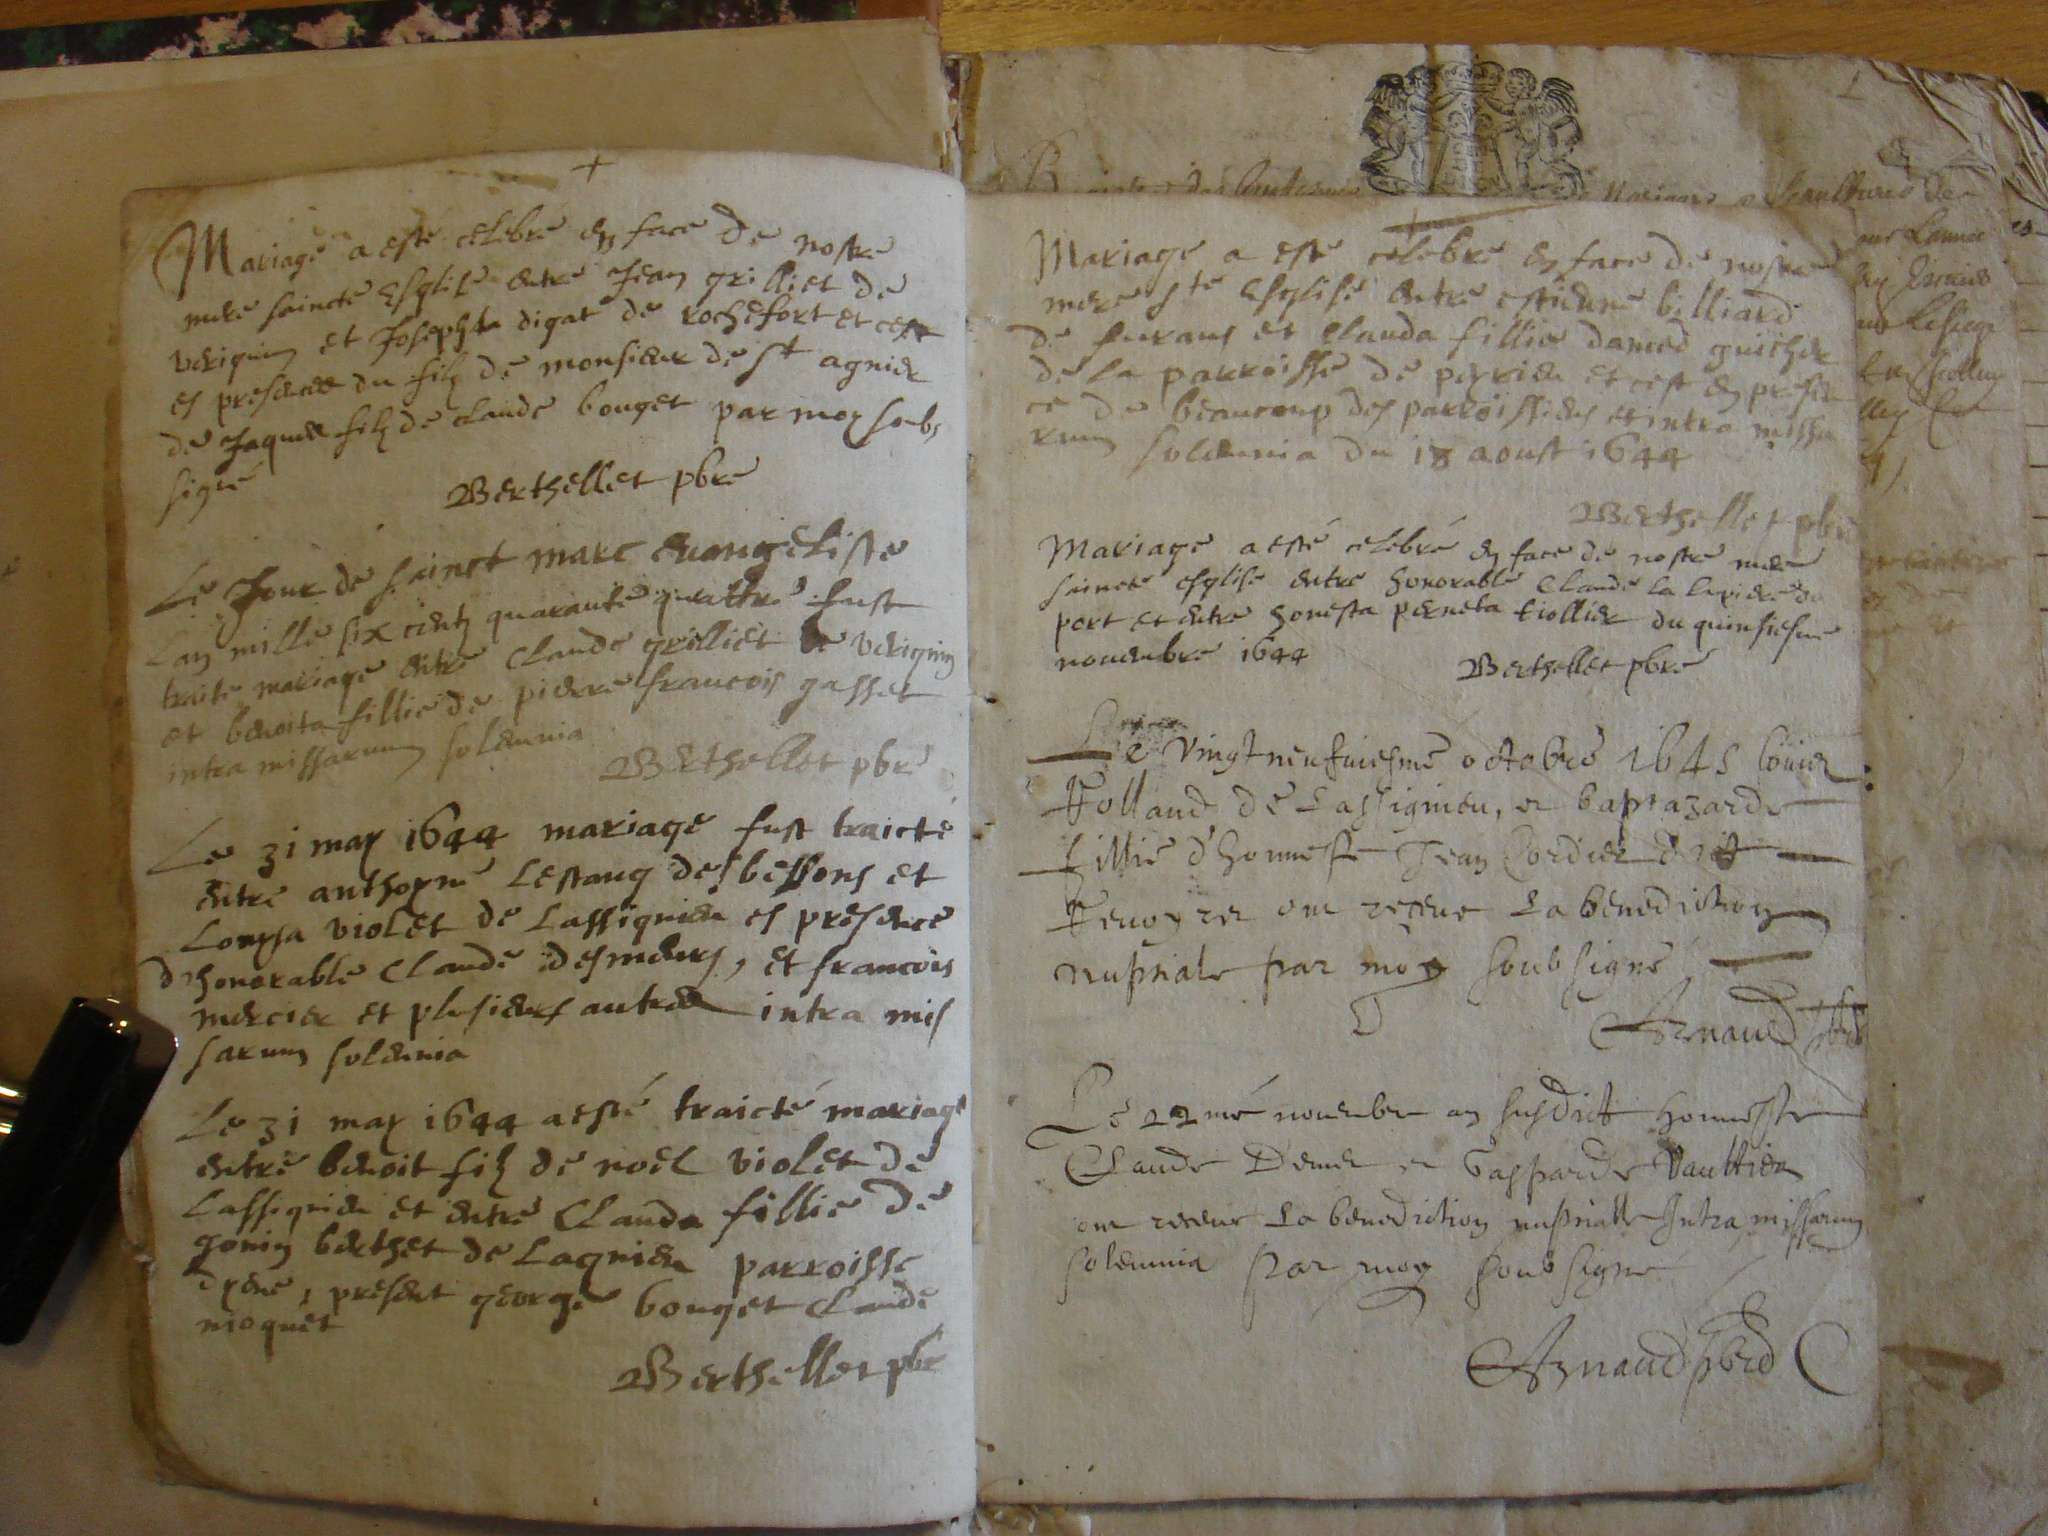 +
Mariage a esté celebré en face de nostre
mere saincte esglise entre Jean grilliet de
verignin et Josephta digat de rochefort et cest
es presences du filz de monsieur de st agnier
de Jaques filz de claude bouget par moy soubs
signé
Berthellet pbre
Le Jour de sainct marc evangeliste
Lan mille six centz quarante quattre fust
traite mariage entre Claude grilliet de verignin
et benoita fillie de pierre francois gasset
intra missarum solemnia
Berthellet pbre
Le 31 may 1644 mariage fust traicté
entre anthoyne Lestang des bessons et
Loupsa violet de Lassignieu es presence
d'honorable Claude desmeurs, et francois
mercier et plusieurs autres intra mis
sarum solemnia
Le 31 may 1644 a esté traicté mariage
entre benoit filz de noël violet de
Lassignieu et entre Clauda fillie de
gonin berthet de Lagnieu parroisse
dyene, present george bouget Claude
moquet
Berthellet pbre
Mariage a esté celebré en face de nostre
mere ste esglise entre estienne billiard
de furans et Clauda fillie damed guicher
de la parroisse de peyrieu et cest en presen
ce de beaucoup des parroissiens et intra missa
rum solemnia du 18 aoust 1644
Berthellet pbre
Mariage a esté celebré en face de nostre mere
saincte esglise entre honorable Claude la
port et entre honesta perneta tiollier du quinsiesme
novembre 1644
Berthellet pbre
Le vingt neufviesme octobre 1645
Rolland de Lassignieu, et baptazarde
fillie d'honneste Jean Cordier dict
Revoyret ont receue La benediction
nuptiale par moy soubsigné
Arnaud pbre
Le 22me novembre an susdict honneste
Claude Demer et Gasparde Vaultier
ont receue La benediction nuptialle Intra missarum
solemnia par moy soubsigné
Arnaud pbre